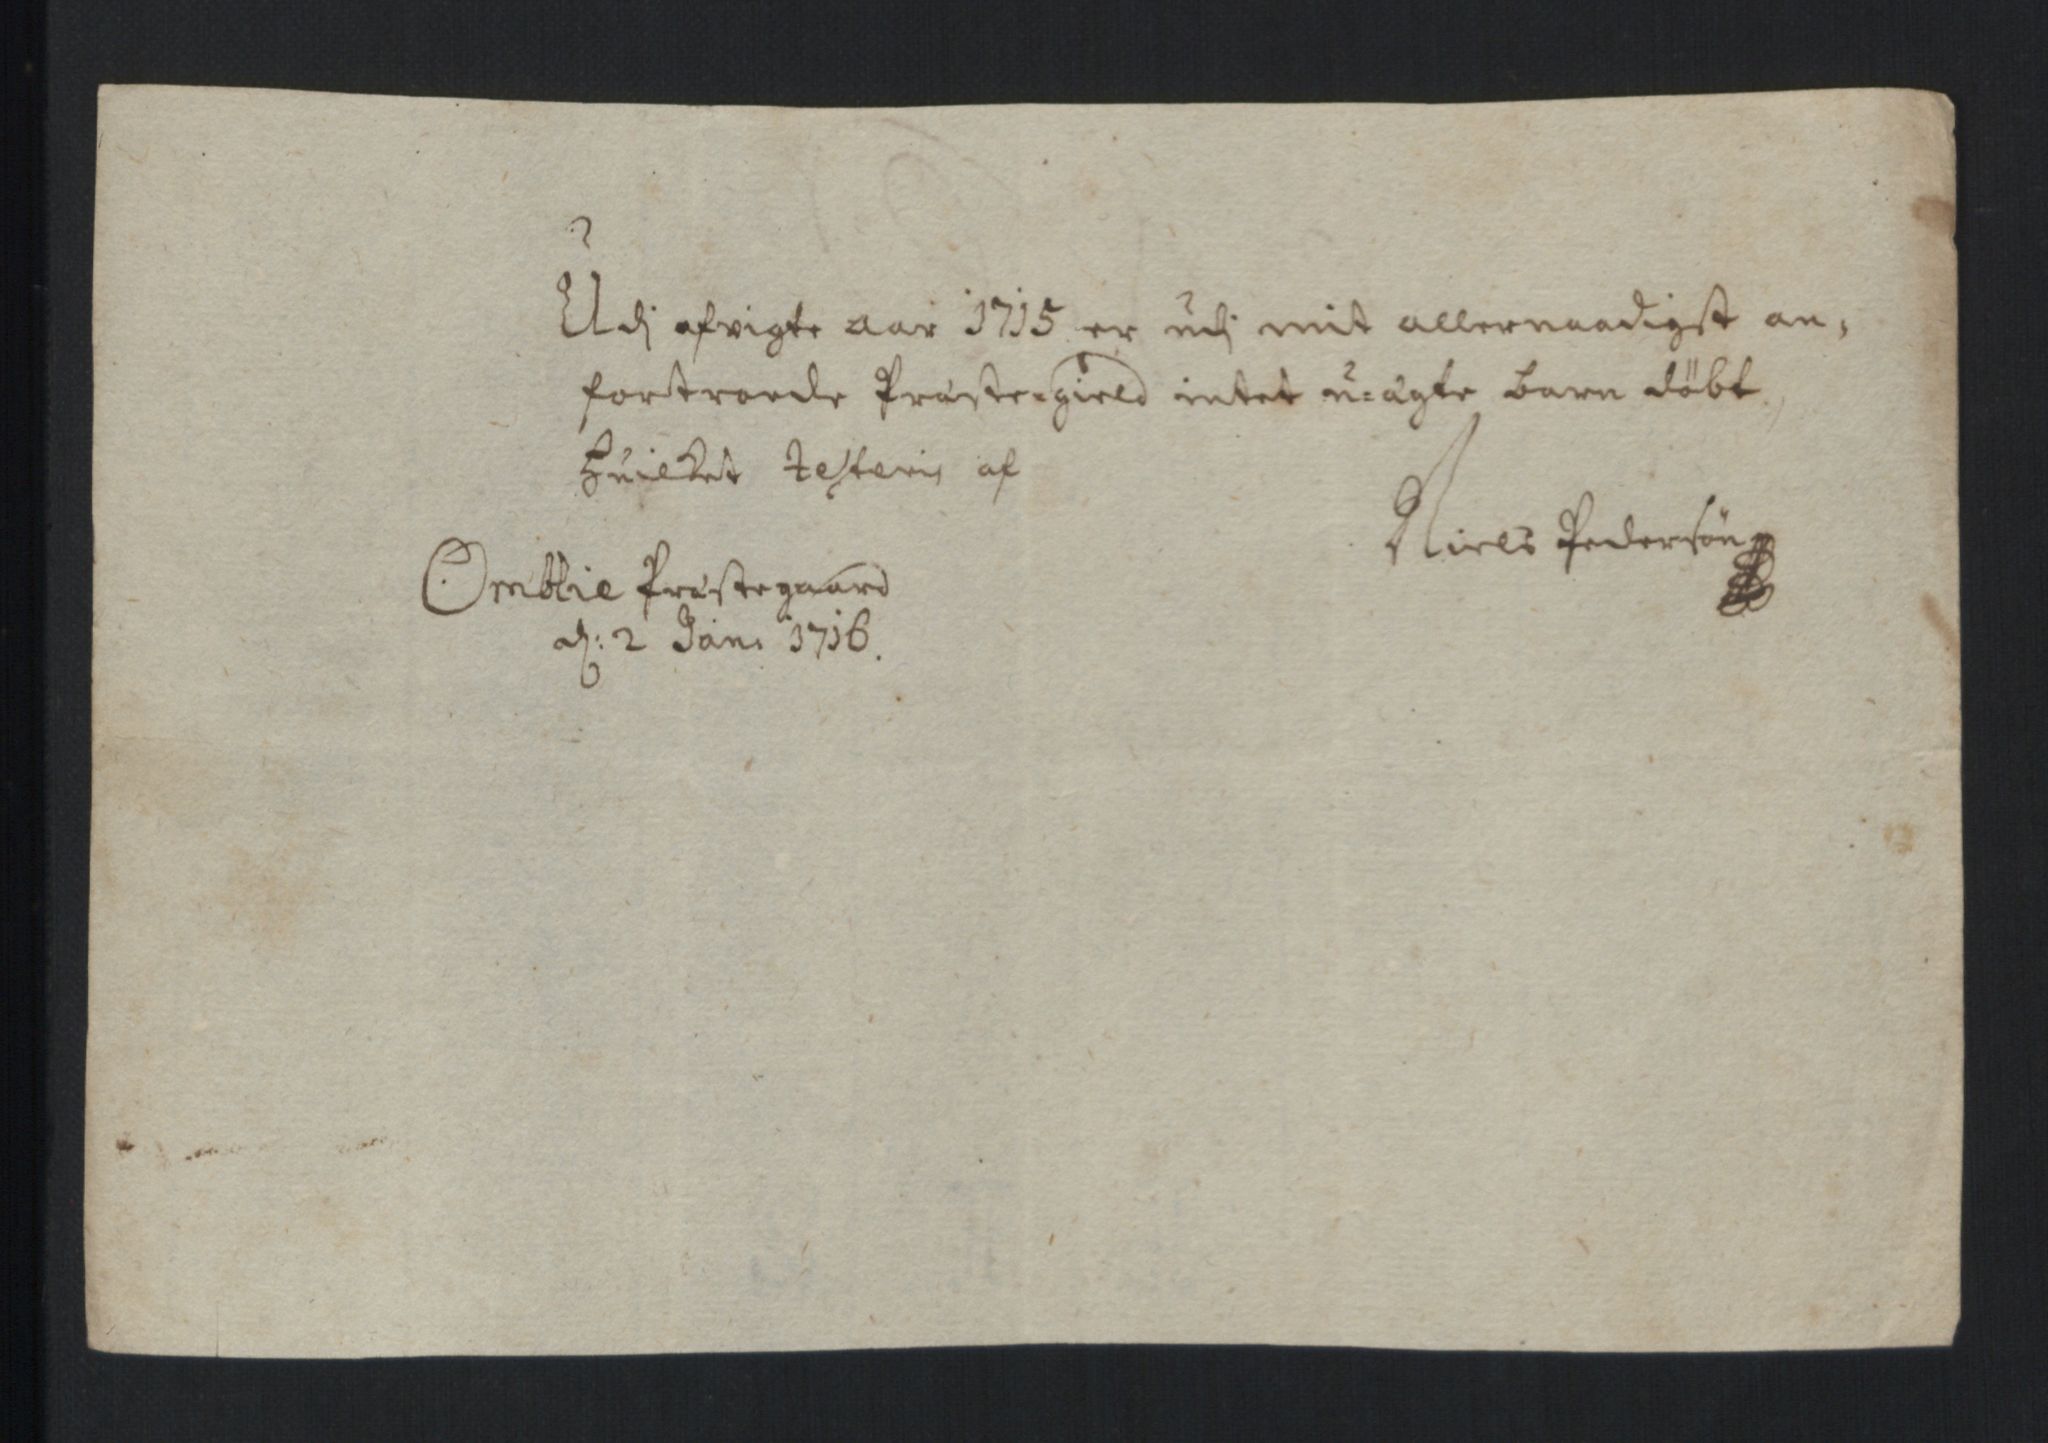 Udj afvigte aar 1715 er udj mit allernaadigst an-
fortroede Præste-gield intet u-ægte barn döbt
Huilket testeris af
Niels Pedersön
Omblie Præstegaard
dj: 2 Jan: 1716.